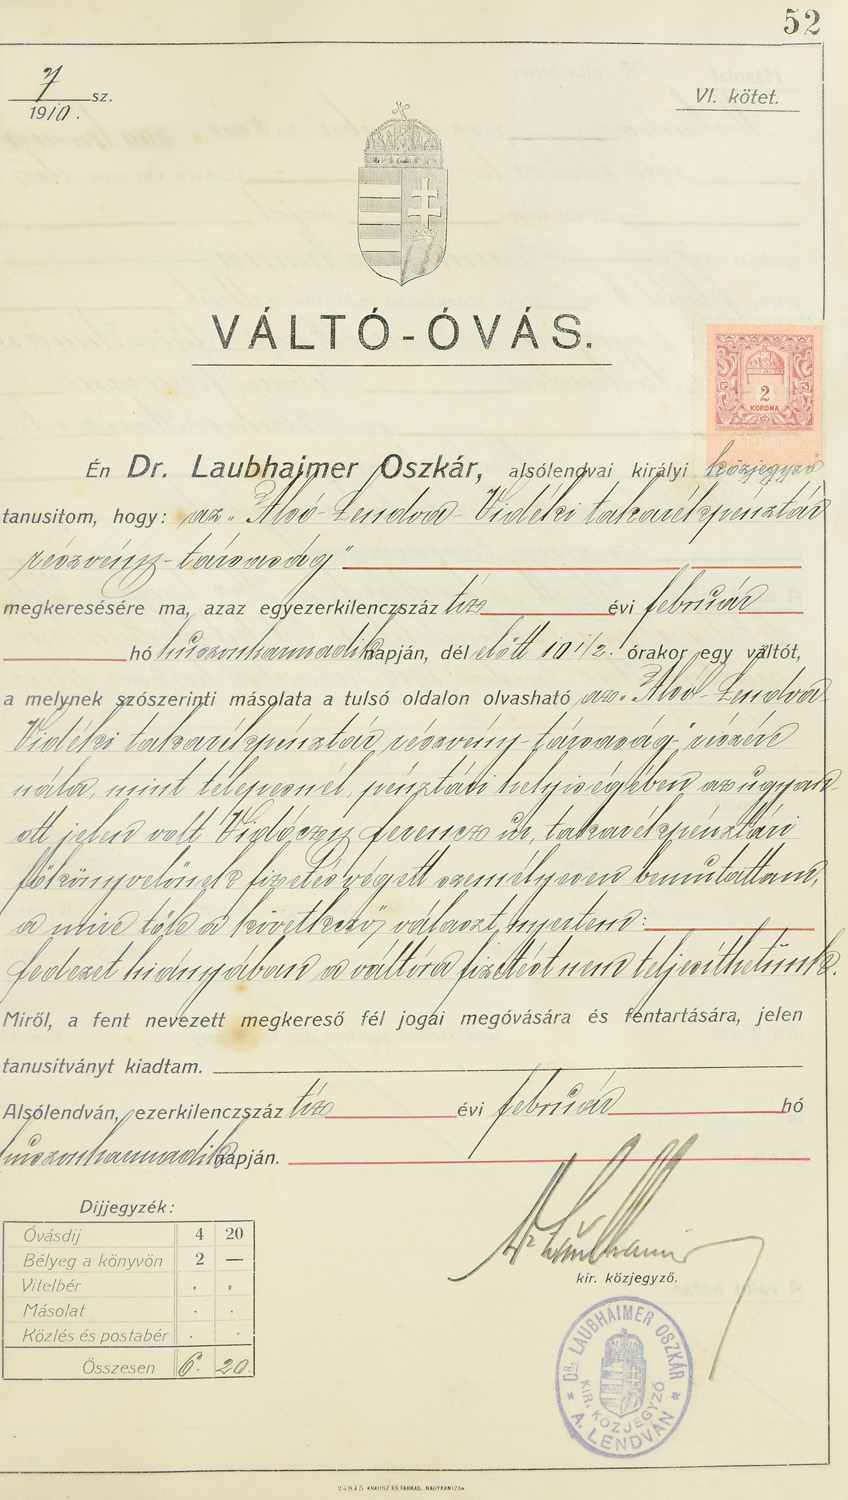 52
7 sz.
1910.
VI. kötet.
VÁLTÓ-ÓVÁS.
2
KORONA
Én Dr. Laubhaimer Oszkár, alsólendvai királyi közjegyző
tanusitom, hogy: az „Alsó-Lendva-Vidéki takarékpénztár
részvény-társaság"
megkeresésére ma, azaz egyezerkilenczszáz tiz évi február
hó huszonharmadik napján, dél előtt 10 1/2. órakor egy váltót,
a melynek szószerinti másolata a tulsó oldalon olvasható az „Alsó-Lendva-
Vidéki takarékpénztár részvény-társaság" részére
nála, mint telepesnél, pénztári helyiségében az ugyan-
ott jelen volt Vidóczy Ferencz úr, takarékpénztári
főkönyvelőnek fizetés végett személyesen bemutattam,
a mire tőle a következő választ nyertem:
fedezet hiányában a váltóra fizetést nem teljesíthetünk.
Miről, a fent nevezett megkereső fél jogai megóvására és fentartására, jelen
tanusitványt kiadtam.
Alsólendván, ezerkilenczszáz tiz évi február hó
huszonharmadik napján.
Dijjegyzék:
Óvásdij 4 20
Bélyeg a könyvön 2 —
Vitelbér . .
Másolat . .
Közlés és postabér . .
Összesen 6. 20.
Dr Laubhaimer
kir. közjegyző.
Dr. LAUBHAIMER OSZKÁR
KIR. KÖZJEGYZŐ
* A. LENDVÁN *
24845 KRAUSZ ÉS FARKAS, NAGYKANIZSA.